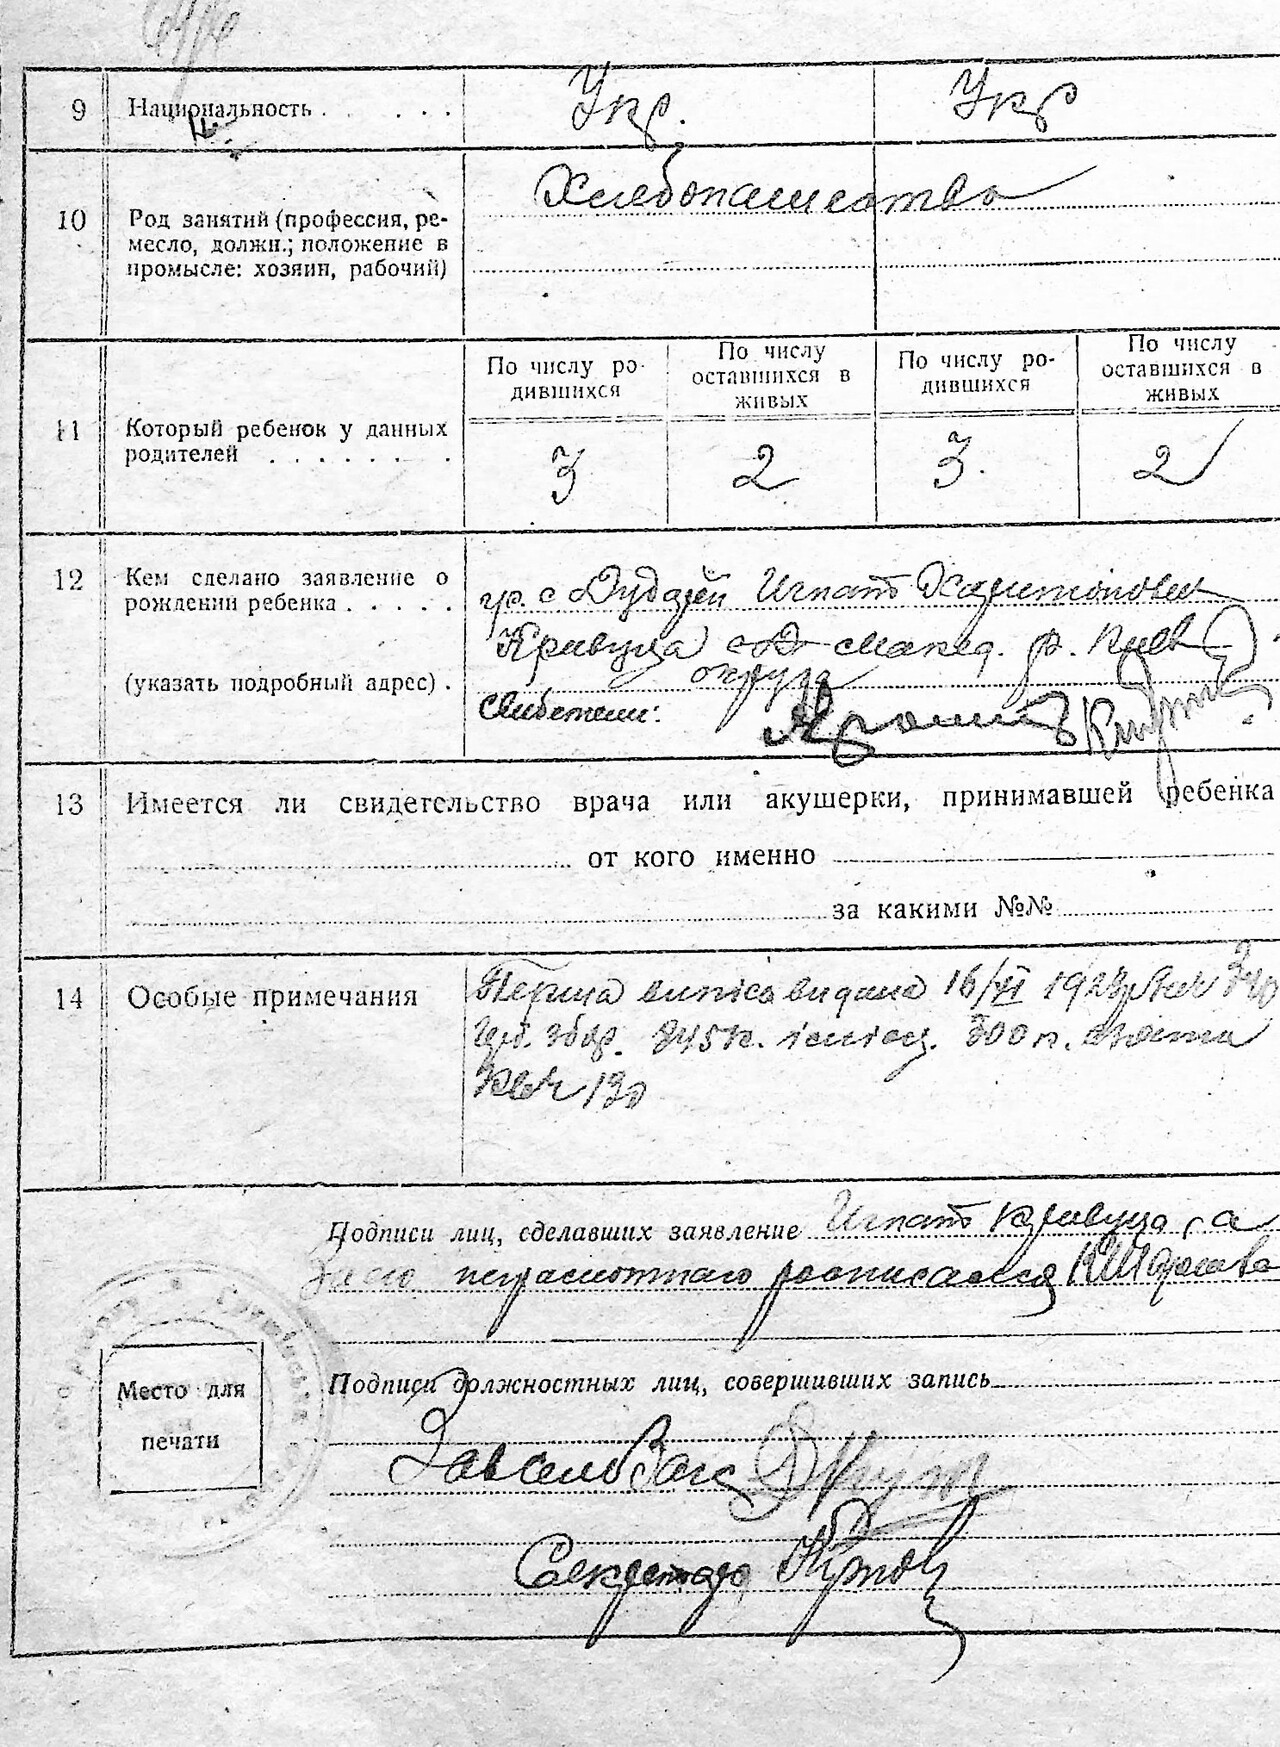 9 Национальность . . . . . Укр. Укр
10 Род занятий (профессия, ре-
месло, должн.; положение в
промысле: хозяин, рабочий)
Хлебопашество
По числу ро-
дившихся
По числу
оставшихся в
живых
По числу ро-
дившихся
По числу
оставшихся в
живых
11 Который ребенок у данных
родителей . . . . . . .
3 2 3. 2
12 Кем сделано заявление о
рождении ребенка . . . . .
(указать подробный адрес) .
гр. с Дударей Игнат Харитонович
Кривуца с Д р. Киев
округа
Свидетели:
13 Имеется ли свидетельство врача или акушерки, принимавшей ребенка
от кого именно
за какими №№
14 Особые примечания
Перша випись видана 16/VI 1923р 340
збор. 845к. 300 п.
Кв № 130
Подписи лиц, сделавших заявление Игнат Кривуца, а
за его неграмотного росписался
Место для
печати
Подписи должностных лиц, совершивших запись
Секретарь